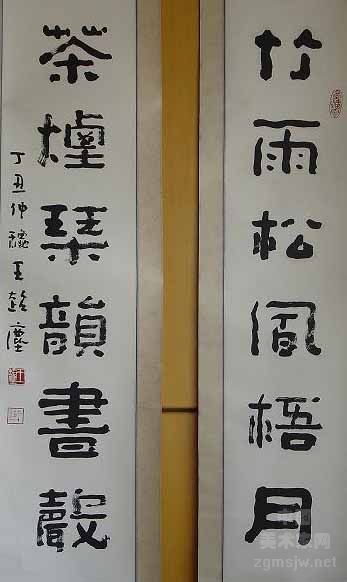 竹雨松風梧月
茶煙琴韻書聲
丁丑仲穐王超塵
美术家网
zgmsjw.net